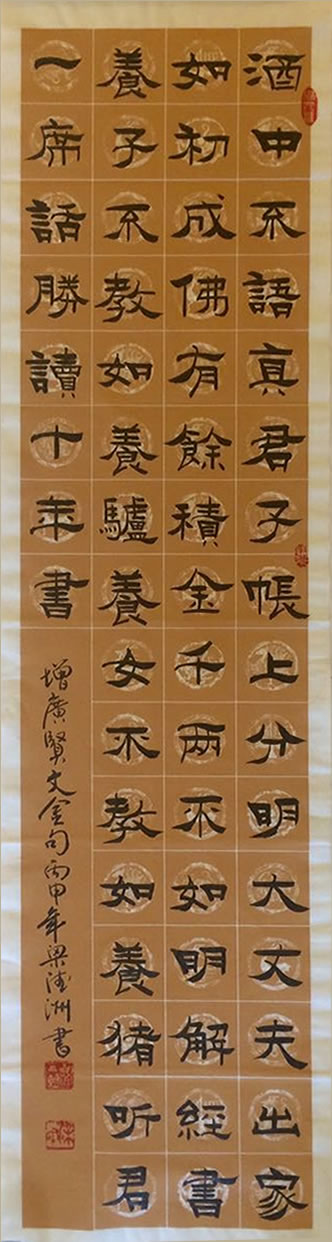 酒中不語真君子帳上分明大丈夫出家
如初成佛有餘積金千兩不如明解經書
養子不教如養驢養女不教如養猪听君
一席話勝讀十年書
增廣賢文金句丙申年梁法洲書